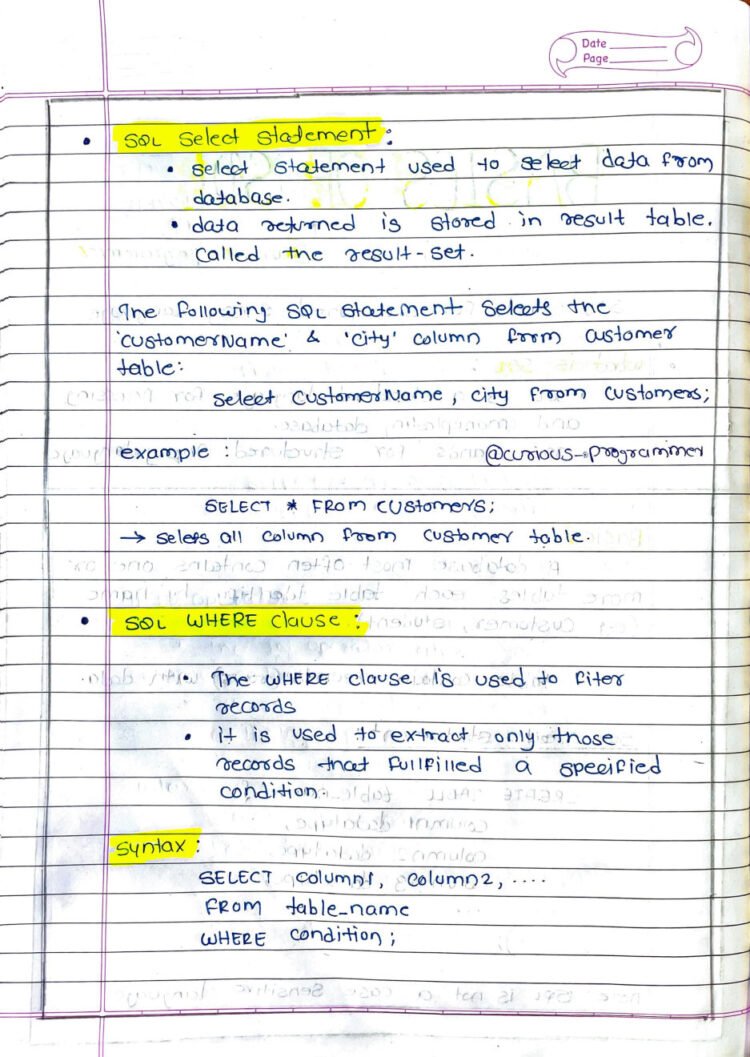 Date
Page
• SQL Select Statement :
• select statement used to select data from
database.
• data returned is stored in result table.
Called the result-set.
The following SQL statement selects the
'CustomerName' & 'City' column from customer
table:
select CustomerName, city from customers;
example : @curious_programmer
SELECT * FROM CUSTOMERS;
→ seleps all column from customer table.
• SQL WHERE clause :
• The WHERE clause is used to fiter
records
• it is used to extract only those
records that fullfilled a specified
condition.
Syntax :
SELECT column1, column2, ....
FROM table_name
WHERE condition;